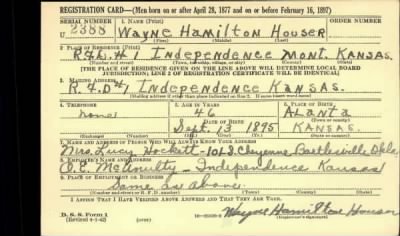 REGISTRATION CARD—(Men born on or after April 28, 1877 and on or before February 16, 1897)
SERIAL NUMBER 1. NAME (Print)
U 2388 Wayne Hamilton Houser
(First) (Middle) (Last)
2. PLACE OF RESIDENCE (Print)
R.F.D. #1 Independence Mont. Kansas.
(Number and street) (Town, township, village, or city) (County) (State)
[THE PLACE OF RESIDENCE GIVEN ON THE LINE ABOVE WILL DETERMINE LOCAL BOARD
JURISDICTION; LINE 2 OF REGISTRATION CERTIFICATE WILL BE IDENTICAL]
3. MAILING ADDRESS
R.F.D #1 Independence Kansas.
[Mailing address if other than place indicated on line 2. If same insert word same]
4. TELEPHONE 5. AGE IN YEARS 6. PLACE OF BIRTH
none 46 Alanta
DATE OF BIRTH (Town or county)
Sept. 13 1895 KANSAS.
(Exchange) (Number) (Mo.) (Day) (Yr.) (State or country)
7. NAME AND ADDRESS OF PERSON WHO WILL ALWAYS KNOW YOUR ADDRESS
Mrs. Lucy Hockett - 101 S. Cheyenne Bartlesville Okla
8. EMPLOYER'S NAME AND ADDRESS
O.E. McAnulty - Independence Kansas
9. PLACE OF EMPLOYMENT OR BUSINESS
Same as above
(Number and street or R. F. D. number) (Town) (County) (State)
I AFFIRM THAT I HAVE VERIFIED ABOVE ANSWERS AND THAT THEY ARE TRUE.
D. S. S. Form 1
(Revised 4-1-42) Wayne Hamilton Houser